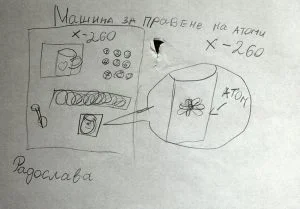 Машина за правене на атоми
X-260
X-260
АТОМ
Радослава